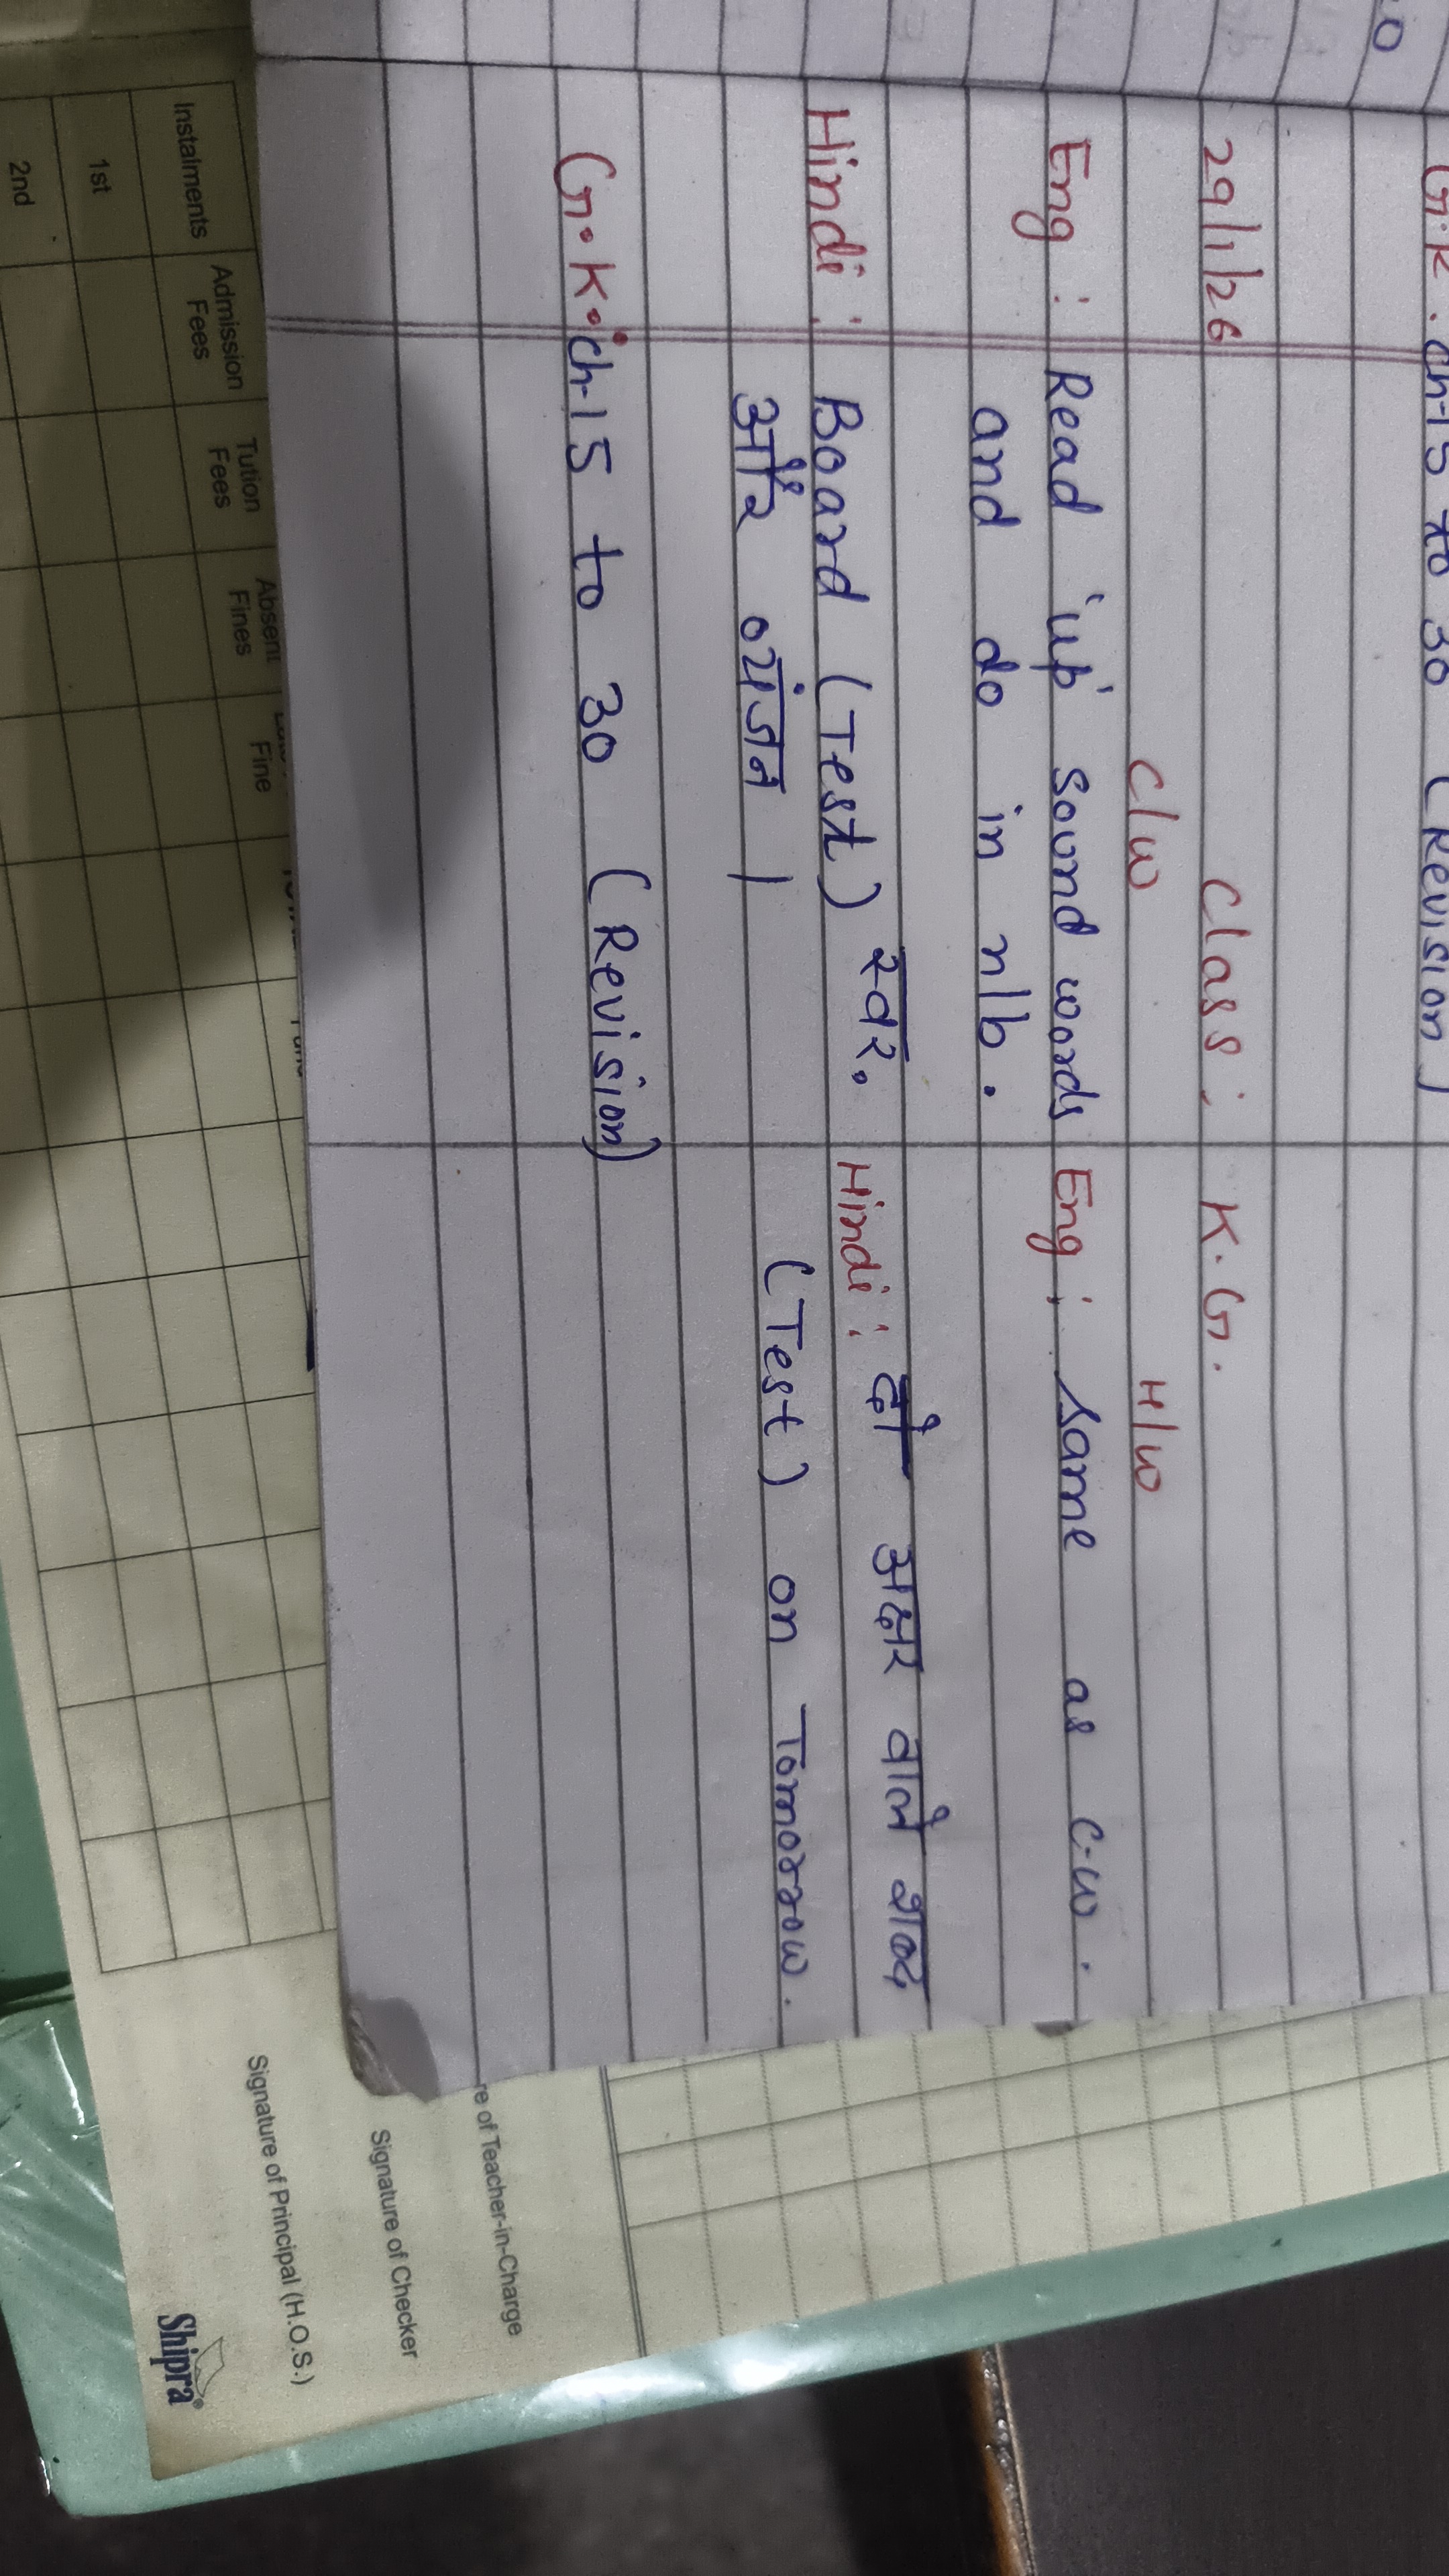 G.K. ch-15 to 30 (Revision)
29/1/26 Class: K.G.
C/W H/W
Eng: Read 'up' sound words Eng: Same as C.W.
and do in n/b.
Hindi: Board (Test) स्वर, Hindi: दो अक्षर वाले शब्द
और व्यंजन । (Test) on Tomorrow.
G.K.: ch-15 to 30 (Revision)
Instalments Admission Fees Tution Fees Absent Fines Fine
1st
2nd
re of Teacher-in-Charge
Signature of Checker
Signature of Principal (H.O.S.)
Shipra